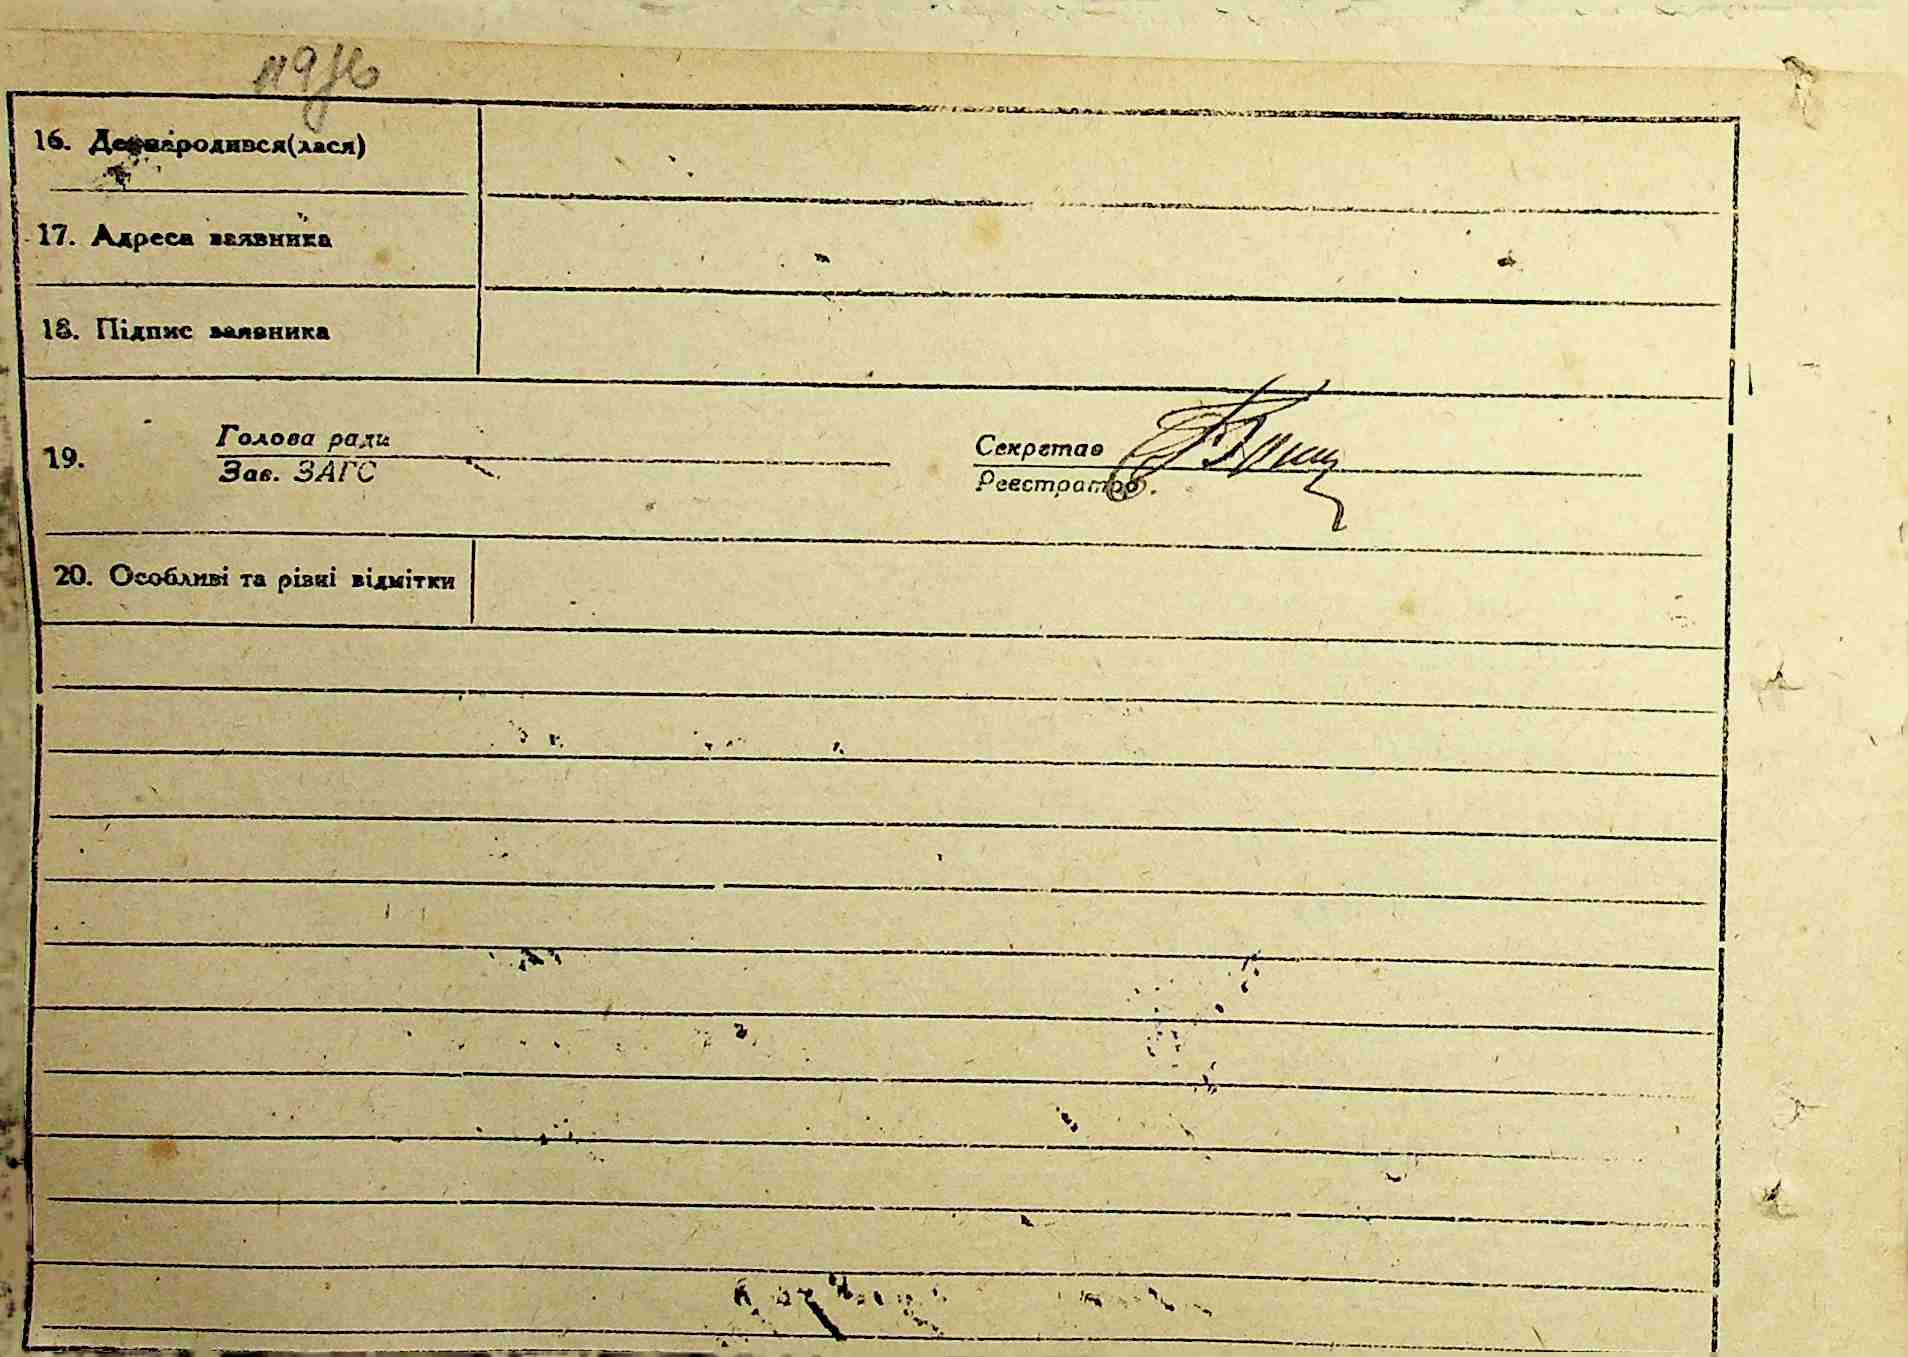 16. Де народився(лася)
17. Адреса заявника
18. Підпис заявника
19.
Голова ради
Зав. ЗАГС
Секретар
Реєстратор
20. Особливі та різні відмітки